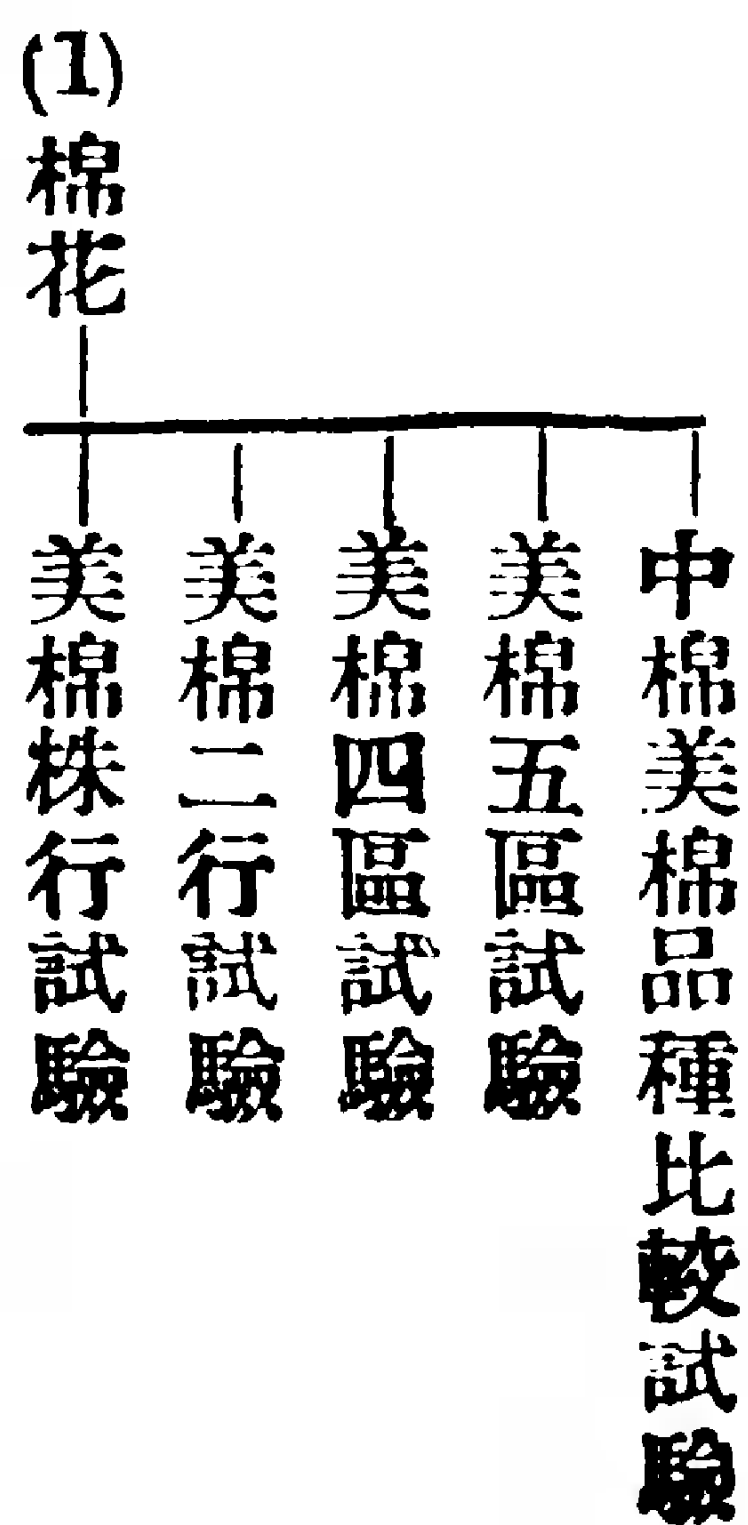 (1)棉花
中棉美棉品種比較試驗
美棉五區試驗
美棉四區試驗
美棉二行試驗
美棉株行試驗